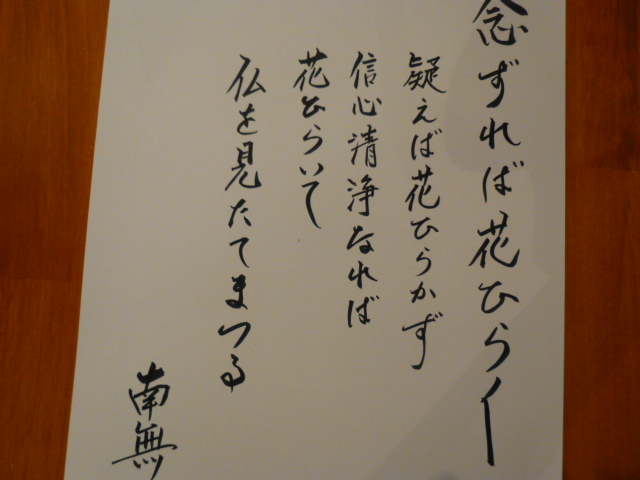 念ずれば花ひらく
疑えば花ひらかず
信心清浄なれば
花ひらいて
仏を見たてまつる
南無